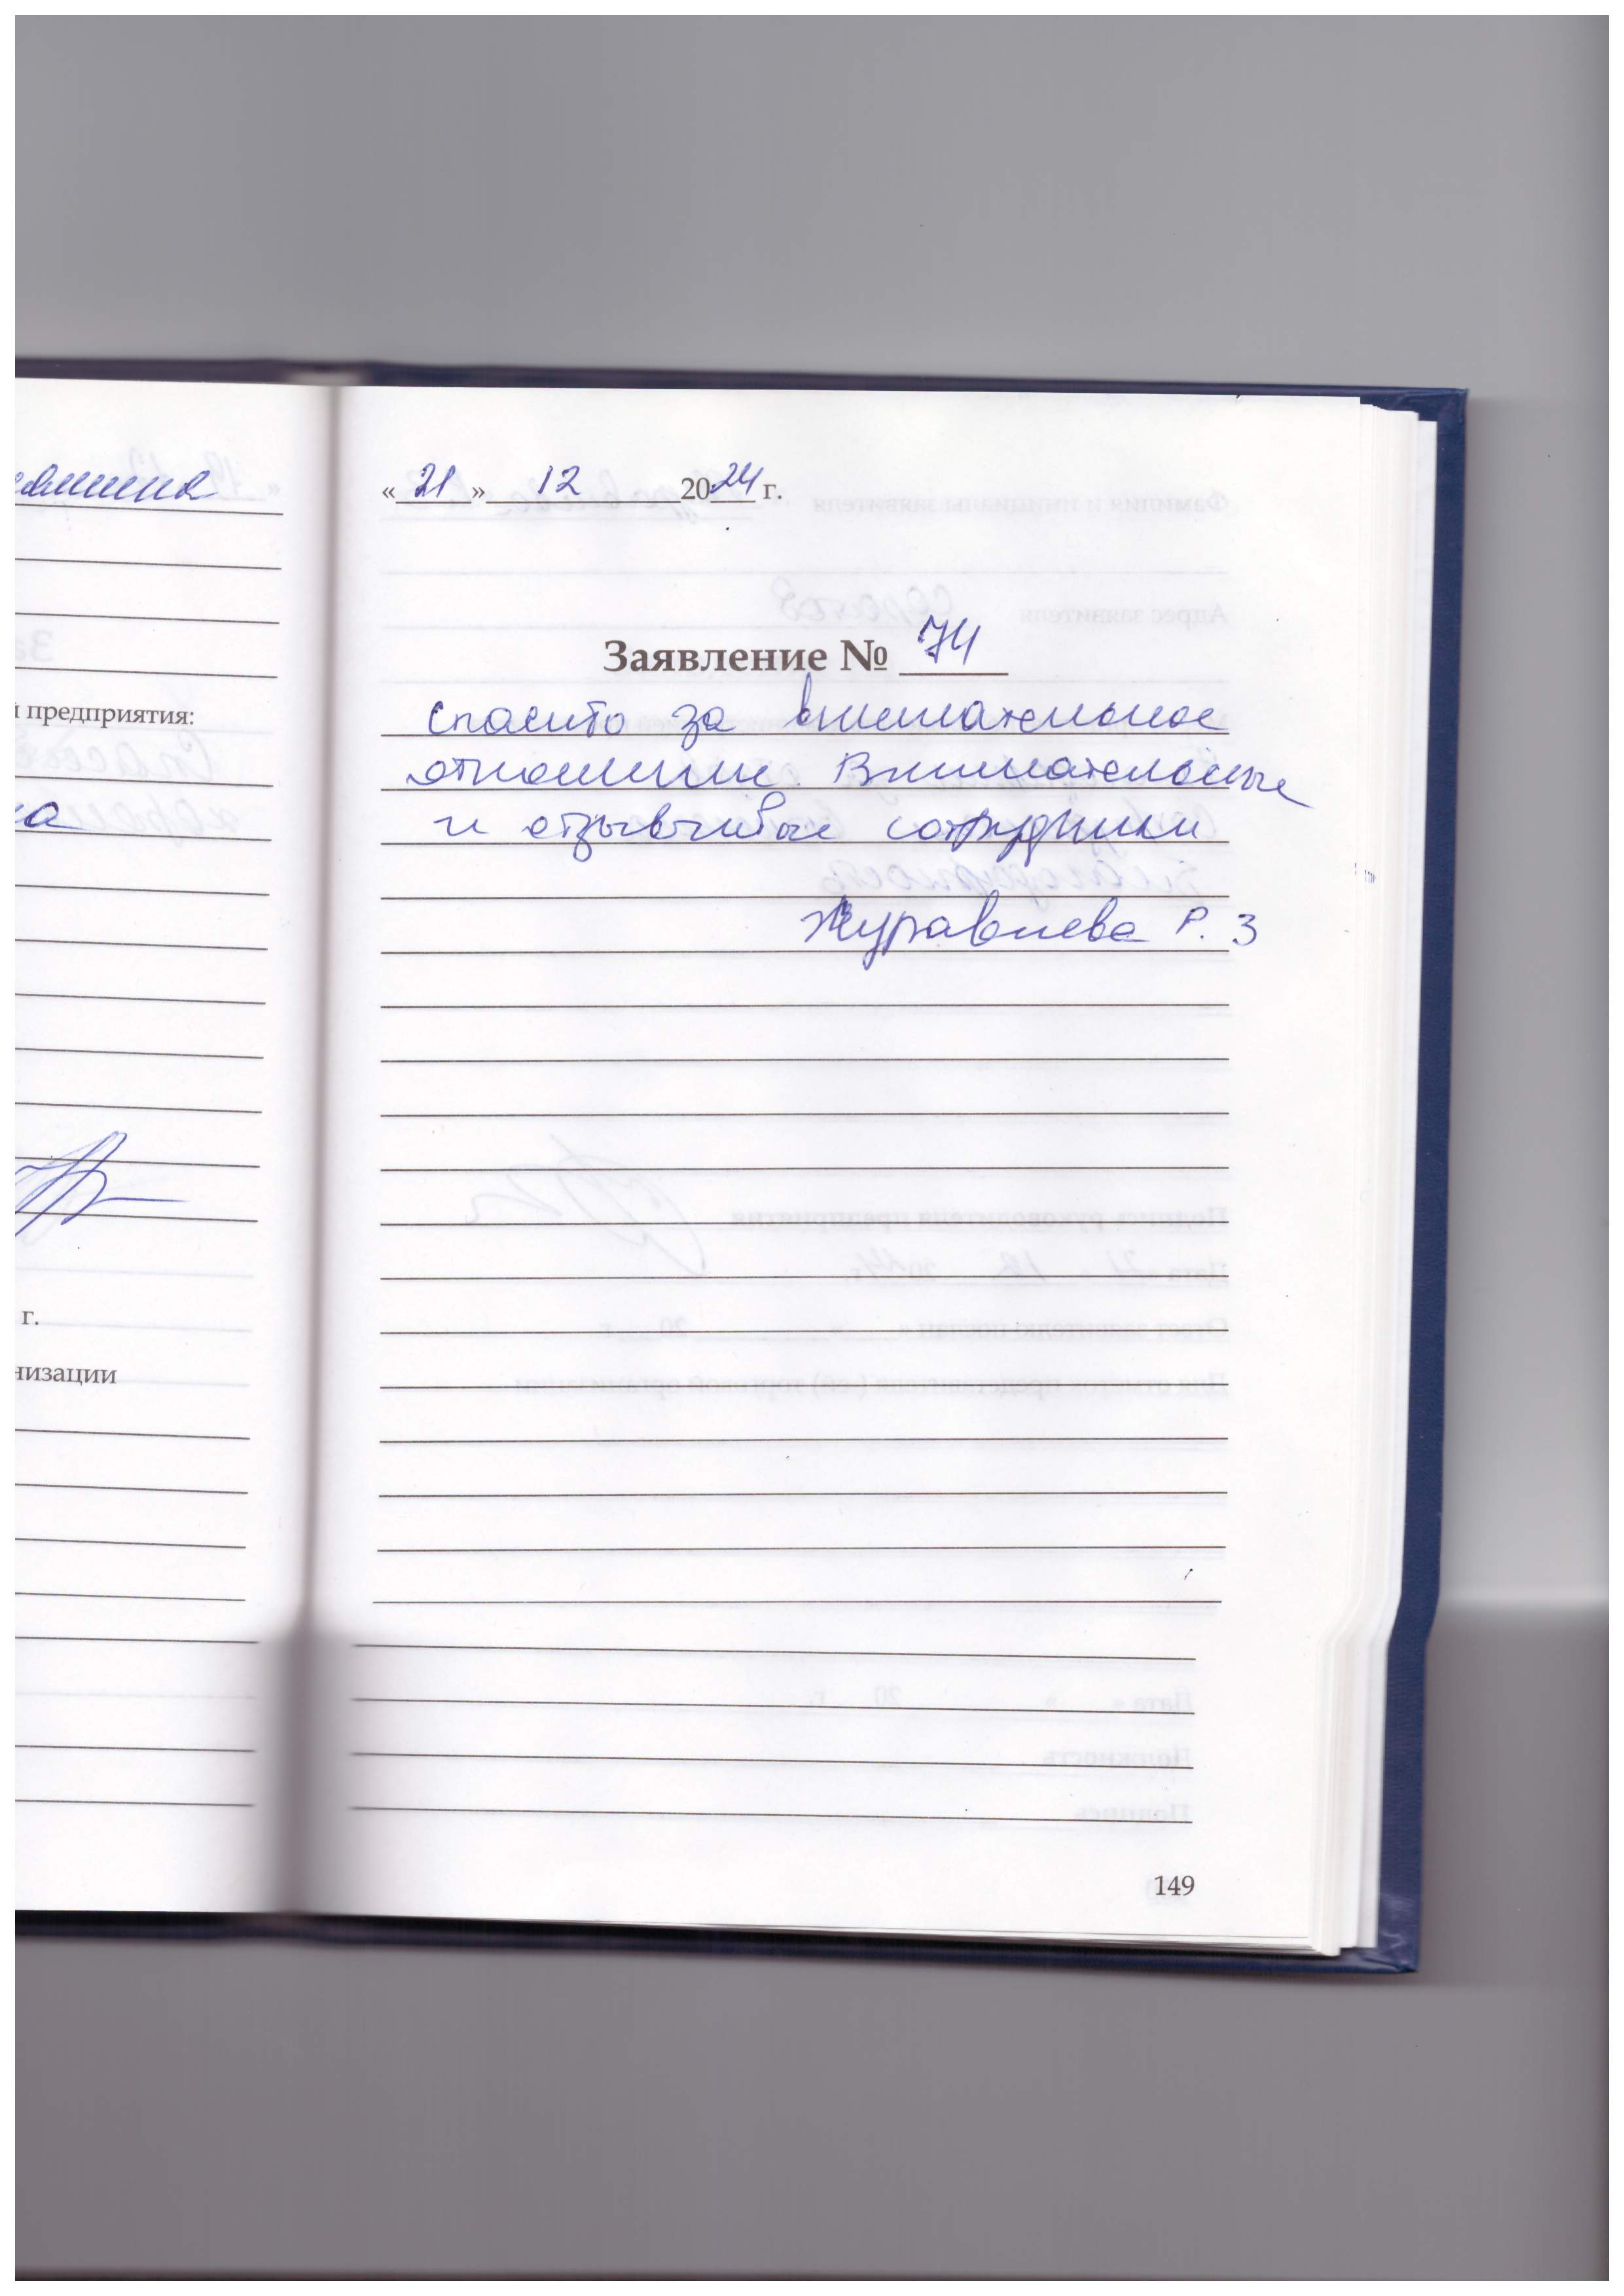 предприятия:
г.
низации
« 21 » 12 2024 г.
Заявление № 74
Спасибо за внимательное
отношение. Внимательные
и отзывчивые сотрудники
Журавлева Р. З
149